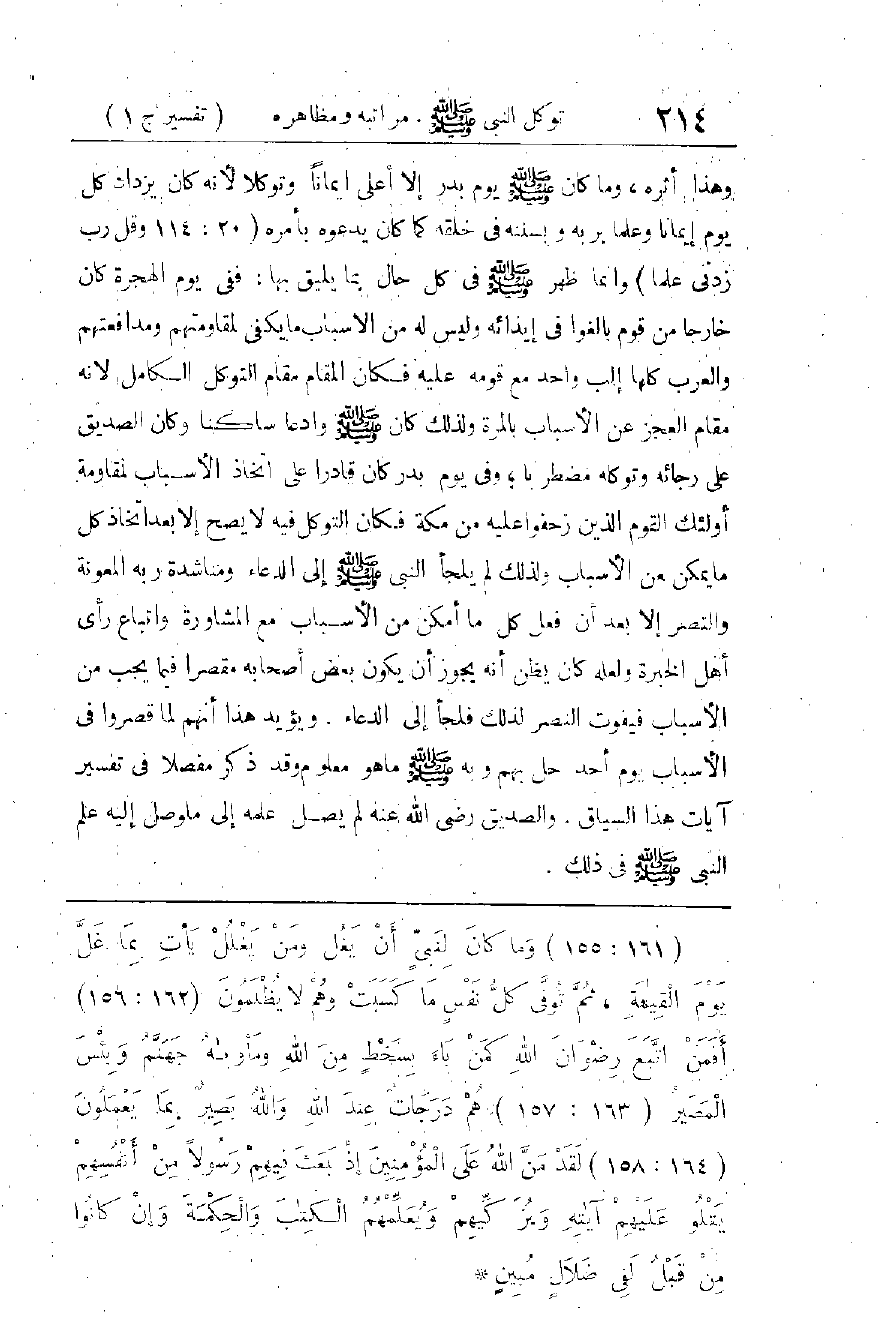 ٢١٤ توكل النبى ﷺ . مراتبه ومظاهره ( تفسير ج ١ )
وهذا أثره ، وما كان ﷺ يوم بدر إلا أعلى ايماناً وتوكلا لأنه كان يزداد كل
يوم إيمانا وعلما بربه وبسننه فى خلقه كما كان يدعوه بأمره ( ٢٠ : ١١٤ وقل رب
زدنى علما ) وانما ظهر ﷺ فى كل حال بما يليق بها : ففى يوم الهجرة كان
خارجا من قوم بالغوا فى إيذائه وليس له من الاسباب مايكفى لمقاومتهم ومدافعتهم
والعرب كلها إلب واحد مع قومه عليه فكان المقام مقام التوكل الكامل لانه
مقام العجز عن الأسباب بالمرة ولذلك كان ﷺ وادعا ساكنا وكان الصديق
على رجائه وتوكله مضطربا ، وفى يوم بدر كان قادرا على اتخاذ الأسباب لمقاومة
أولئك القوم الذين زحفوا عليه من مكة فكان التوكل فيه لا يصح إلا بعد اتخاذ كل
مايمكن من الأسباب ولذلك لم يلجأ النبى ﷺ إلى الدعاء ومناشدة ربه المعونة
والنصر إلا بعد أن فعل كل ما أمكن من الأسباب مع المشاورة واتباع رأى
أهل الخبرة ولعله كان يظن أنه يجوز أن يكون بعض أصحابه مقصرا فيما يجب من
الأسباب فيفوت النصر لذلك فلجأ إلى الدعاء . ويؤيد هذا أنهم لما قصروا فى
الأسباب يوم أحد حل بهم وبه ﷺ ماهو معلوم وقد ذكر مفصلا فى تفسير
آيات هذا السياق . والصديق رضى الله عنه لم يصل علمه إلى ماوصل إليه علم
النبى ﷺ فى ذلك .
( ١٦١ : ١٥٥ ) وَما كانَ لِنَبِىٍّ أَنْ يَغُل ومَنْ يَغْلُلْ يَأْتِ بِمَا غَلَّ
يَوْمَ الْقِيمَةِ ، ثُمَّ تُوَفَّى كلُّ نَفْسٍ مَا كَسَبَتْ وهُمْ لا يُظْلَمُونَ ( ١٦٢ : ١٥٦ )
أَفَمَنْ اتَّبَعَ رِضْوَانَ اللهِ كَمَنْ بَاءَ بِسَخَطٍ مِنَ اللهِ ومَأْوٰىهُ جَهَنَّمُ وَبِئْسَ
الْمَصِيرُ ( ١٦٣ : ١٥٧ ) هُمْ دَرَجَاتٌ عِنْدَ اللهِ وَاللهُ بَصِيرٌ بِمَا يَعْمَلُونَ
( ١٦٤ : ١٥٨ ) لَقَدْ مَنَّ اللهُ عَلَى الْمُؤْمِنِينَ إِذْ بَعَثَ فِيهِمْ رَسُولاً مِنْ أَنْفُسِهِمْ
يَتْلُو عَلَيْهِمْ آيَتِهِ وَيُزَكِّيهِمْ وَيُعَلِّمُهُمُ الْكِتٰبَ وَالْحِكْمَةَ وَإِنْ كَانُوا
مِنْ قَبْلُ لَفِى ضَلَالٍ مُبِينٍ *